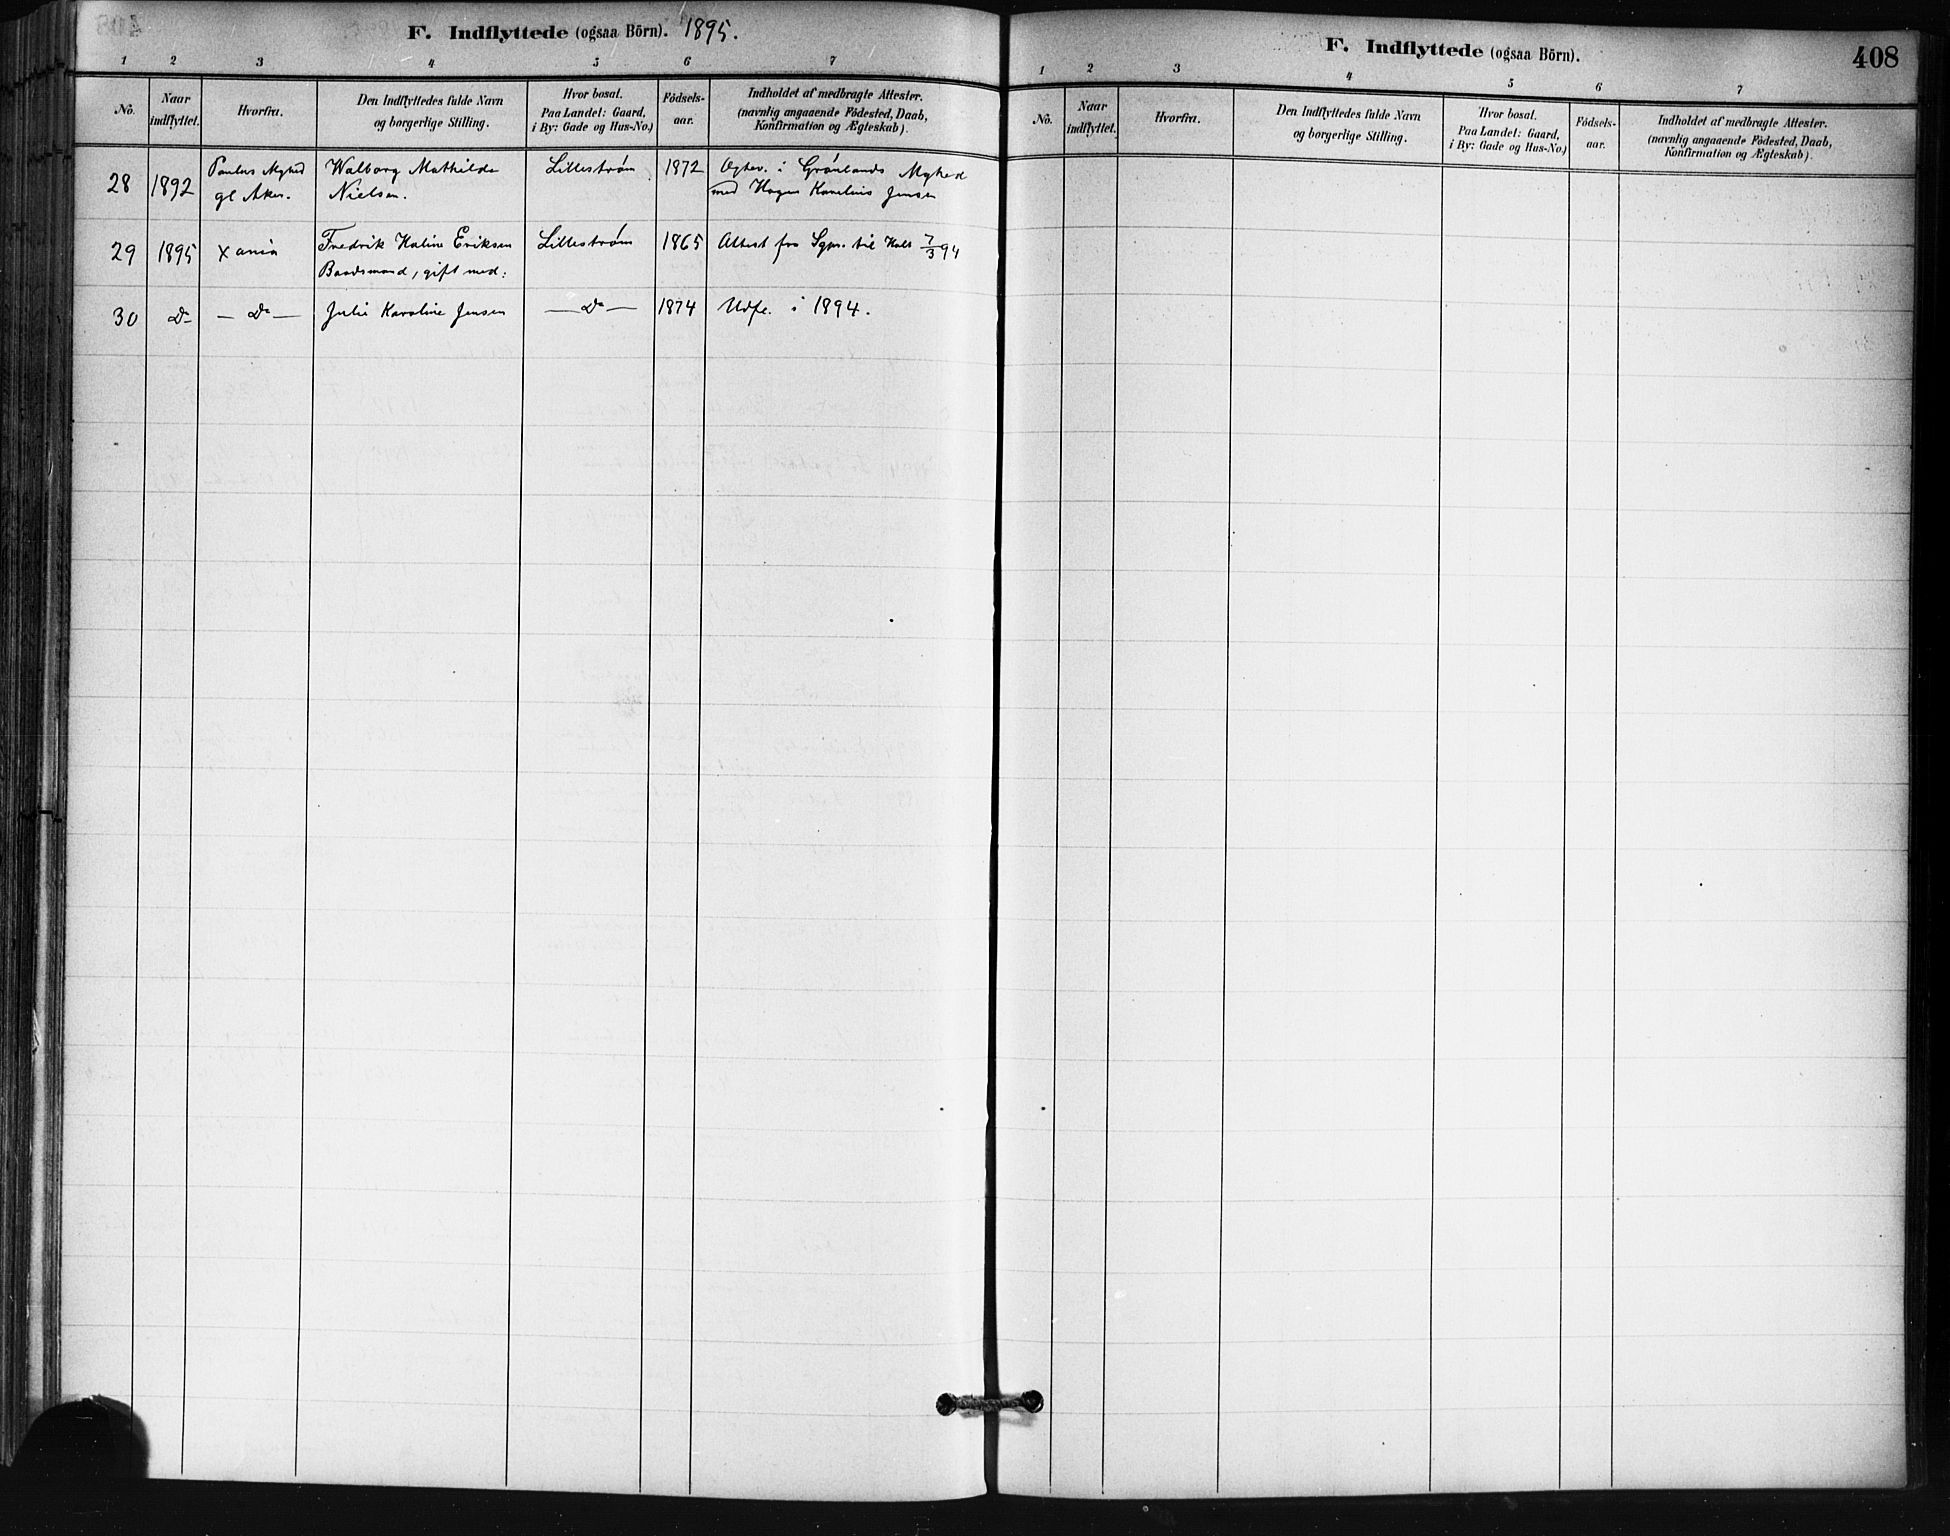 F. Indflyttede (ogsaa Börn). 1895.
1 2 3 4 5 6 7
No.
Naar indflyttet.
Hvorfra.
Den Indflyttedes fulde Navn
og borgerlige Stilling.
Hvor bosat.
Paa Landet: Gaard,
i By: Gade og Hus-No.)
Födsels-
aar.
Indholdet af medbragte Attester.
(navnlig angaaende Födested, Daab,
Konfirmation og Ægteskab).
28 1892 Paulus Myhed Walborg Mathilde Lillestrøm 1872 i Grønlands Myhed
gl. Aker. Nielsen. med Hagen Kornelius Jensen
29 1895 Xania Fredrik Eriksen Lillestrøm 1865 Attest fra til 7/3 94
Baadsmand, gift med:
30 Do — Do — Julie Karoline Jensen — Do — 1874 Udfl. i 1894.
F. Indflyttede (ogsaa Börn).
408
1 2 3 4 5 6 7
No.
Naar
indflyttet.
Hvorfra.
Den Indflyttedes fulde Navn
og borgerlige Stilling.
Hvor bosat.
Paa Landet: Gaard,
i By: Gade og Hus-No.)
Födsels-
aar.
Indholdet af medbragte Attester.
(navnlig angaaende Födested, Daab,
Konfirmation og Ægteskab).